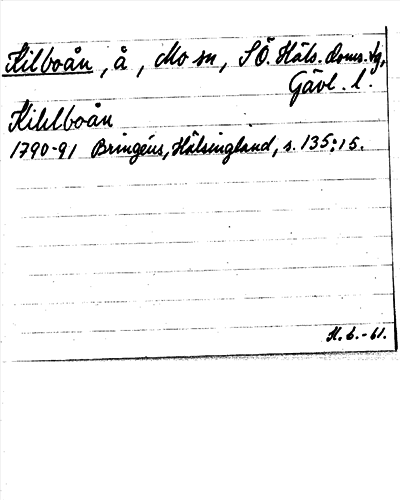 Kilboån, å, Mo sn, SÖ. Häls. doms.-sg,
Gävl. l.
Kihlboån
1790-91 Bringéus, Hälsingland, s. 135:15.
H. b. -61.